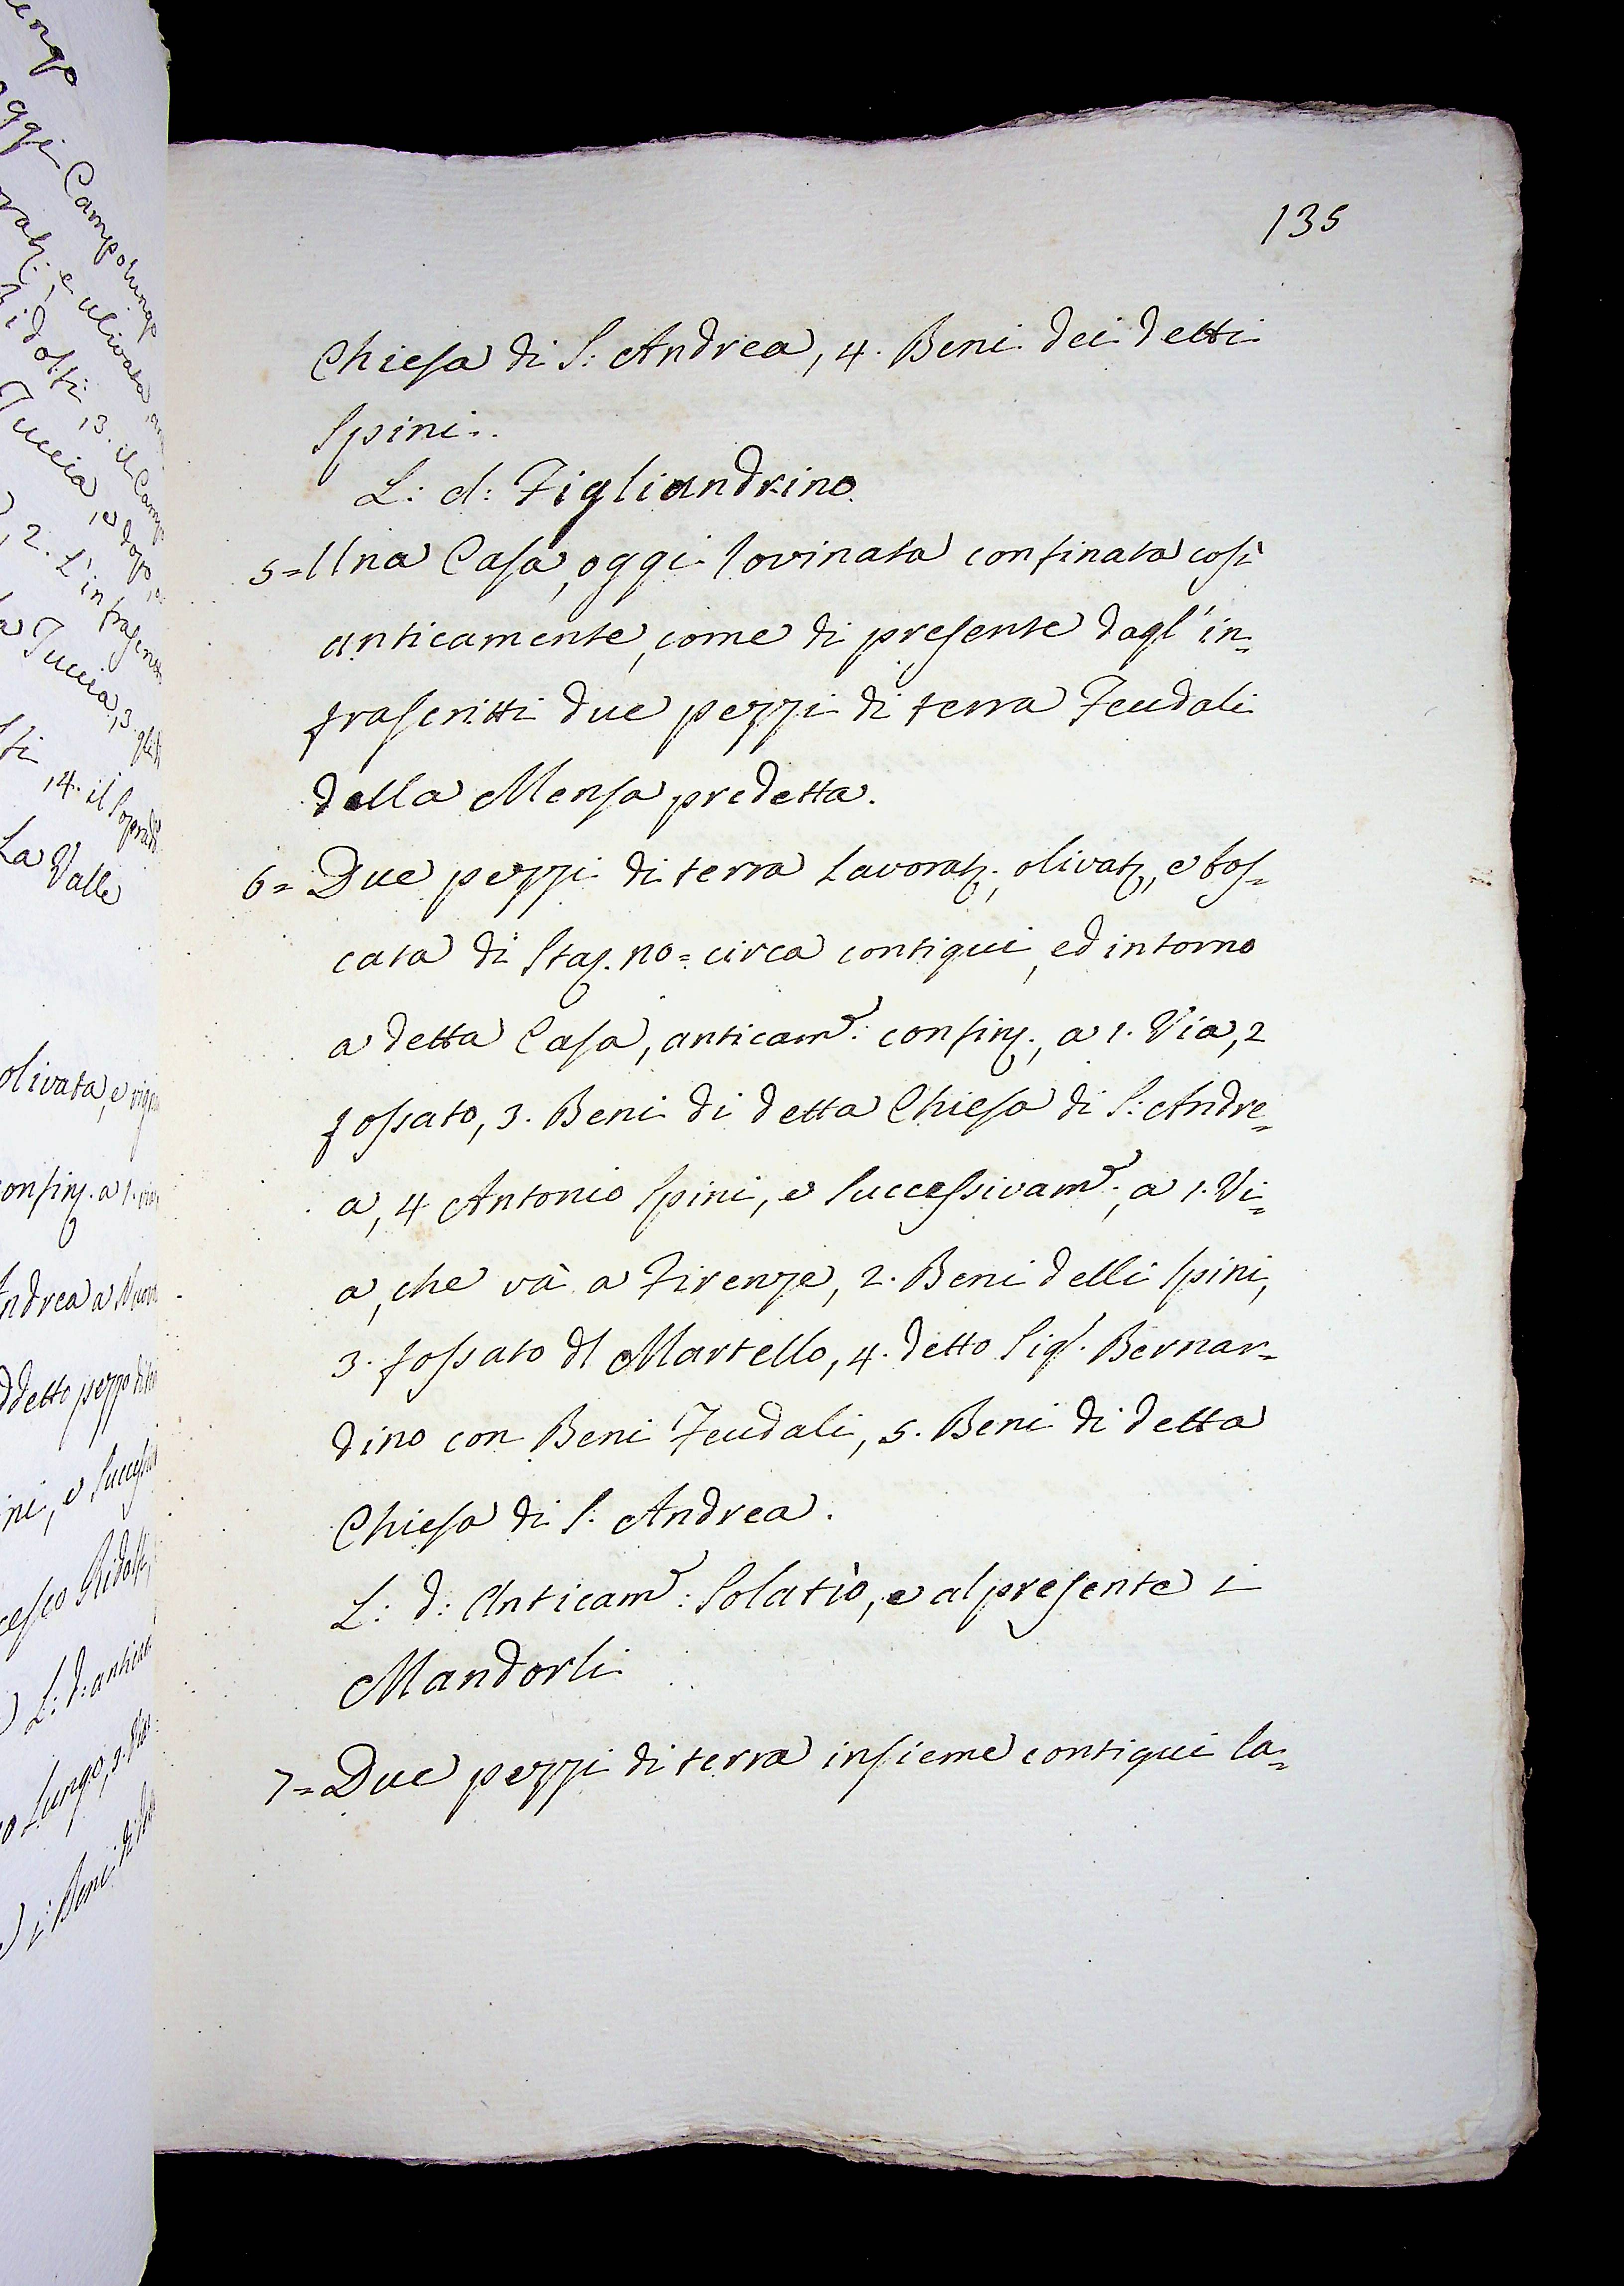 135
Chiesa di S: Andrea, 4. Beni dei detti
Spini.
L: d: Figliandrino
5= Una Casa, oggi rovinata confinata così
anticamente, come di presente dagl'in=
frascritti due pezzi di terra Feudali
della Mensa predetta.
6= Due pezzi di terra lavorat:, olivat:, e bos=
cata di Sta: 110= circa contigui, ed intorno
a detta Casa, anticam:te confin:, a 1. Via, 2
fossato, 3. Beni di detta Chiesa di S: Andre=
a, 4 Antonio Spini, e successivam:te, a 1. Vi=
a, che và a Firenze, 2. Beni delli Spini,
3. fossato dl Martello, 4. detto Sig:r Bernar=
dino con Beni Feudali, 5. Beni di detta
Chiesa di S: Andrea.
L: d: Anticam:te Solatìo, e al presente i
Mandorli
7= Due pezzi di terra insieme contigui la=
Campolungo
e ulivata
Tuccia, e dopo
2. L'infrascri
Tuccia, 3. gli
, 4. il Sopradi
La Valle
olivata, e vign
onfin: a 1. via
ndrea a
detto pezzo di te
ni, e Succes
cesco Ridolfi,
L: d: antica
o Lungo, 3. Via
i Beni di d